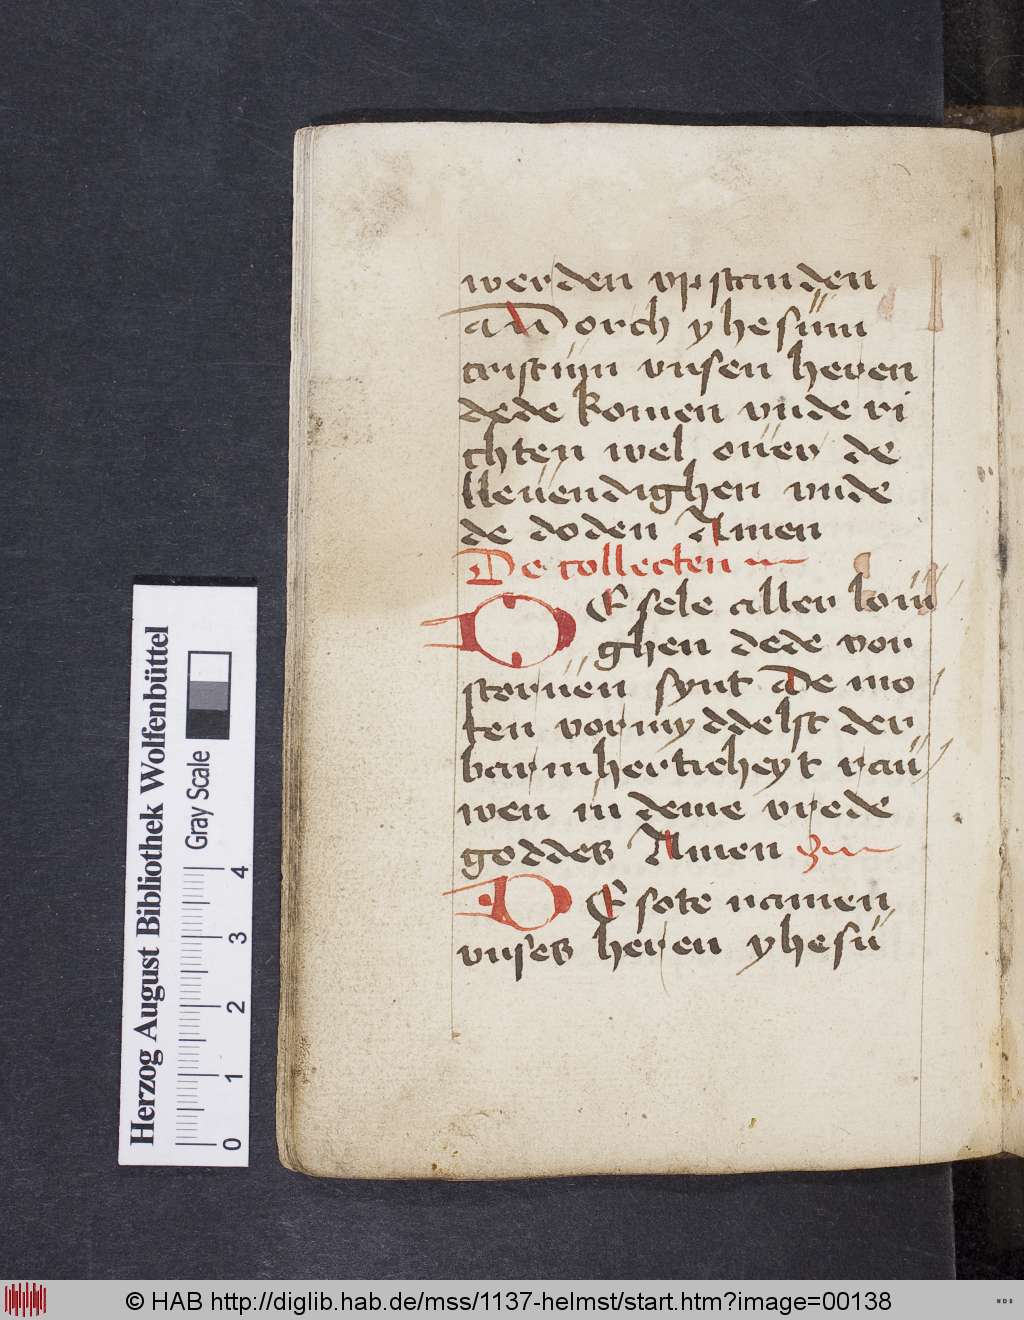 werden vpstanden
ann dorch yhesüm
cristum vnsen heren
dede komen vnde ri
chten wel ouer de
lleuendighen vnde
de doden Amen
De collecten
DE sele aller louiͤ
ghen dede vor
storuen synt de mo
ten vormyddelst der
barmherticheyt rau
wen in deme vrede
goddes Amen
DE sote namen
vnses heren yhesü
Herzog August Bibliothek Wolfenbüttel
Gray Scale
0 1 2 3 4
© HAB http://diglib.hab.de/mss/1137-helmst/start.htm?image=00138